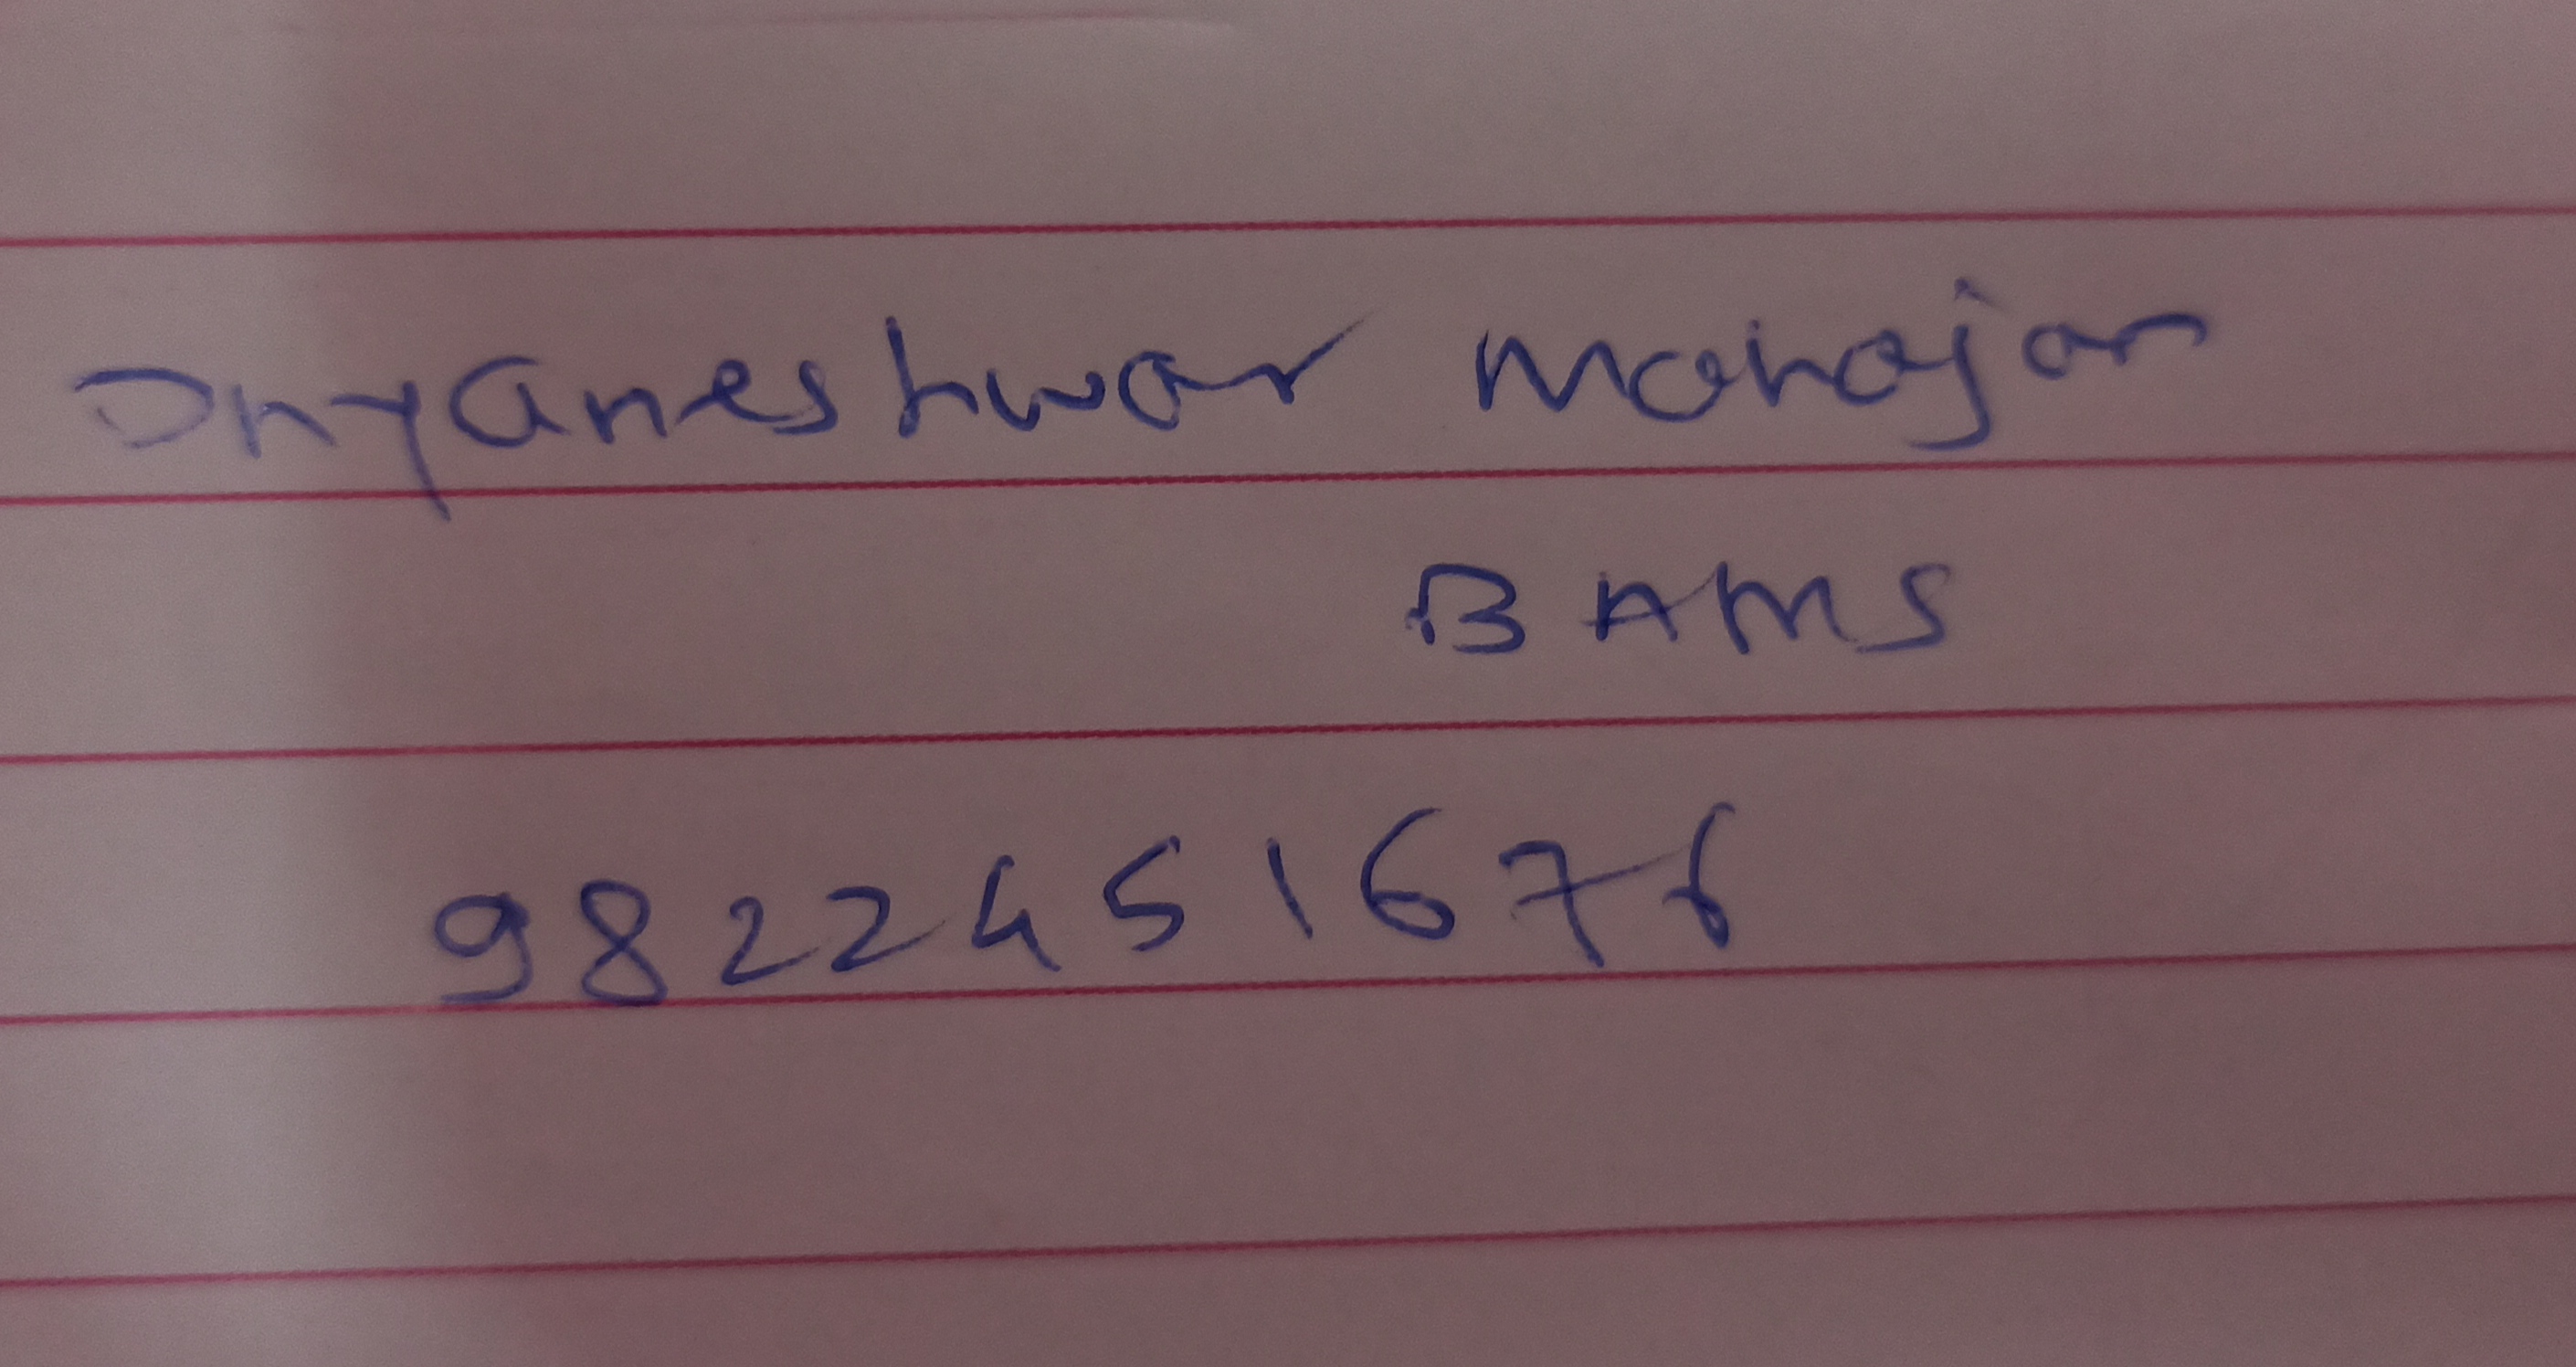 Dnyaneshwar Mahajan
BAMS
9822451676